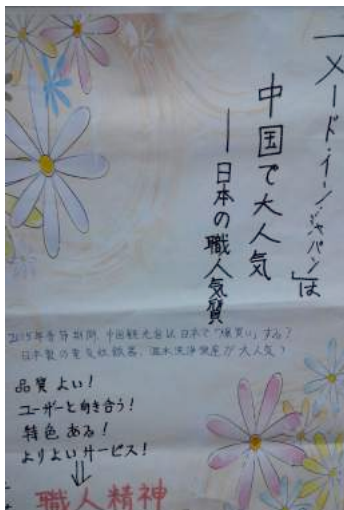 「メード・イン・ジャパン」は
中国で大人気
―日本の職人気質
2015年春节期間、中国観光客は日本で「爆買い」する?
日本製の電気炊飯器、温水洗浄便座が大人気?
品質よい!
ユーザーと向き合う!
特色ある!
よりよいサービス!
⇓
職人精神